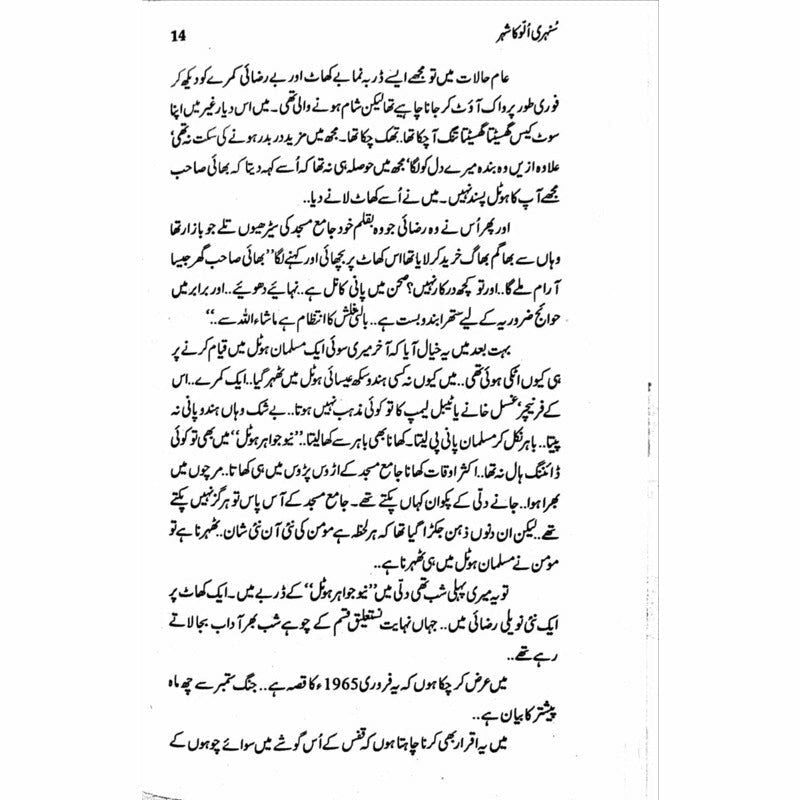 سُنہری اُلّو کا شہر
14
عام حالات میں تو مجھے ایسے ڈربہ نما بے کھاٹ اور بے رضائی کمرے کو دیکھ کر
فوری طور پر واک آؤٹ کر جانا چاہیے تھا لیکن شام ہونے والی تھی۔ میں اس دیار غیر میں اپنا
سوٹ کیس گھسیٹتا گھسیٹتا تنگ آ چکا تھا.. تھک چکا تھا۔ مجھ میں مزید در بدر ہونے کی سکت نہ تھی‘
علاوہ ازیں وہ بندہ میرے دل کو لگا‘ مجھ میں حوصلہ ہی نہ تھا کہ اُسے کہہ دیتا کہ بھائی صاحب
مجھے آپ کا ہوٹل پسند نہیں۔ میں نے اُسے کھاٹ لانے دیا..
اور پھر اُس نے وہ رضائی جو وہ بقلم خود جامع مسجد کی سیڑھیوں تلے جو بازار تھا
وہاں سے بھاگم بھاگ خرید کر لایا تھا اس کھاٹ پر بچھائی اور کہنے لگا ’’بھائی صاحب گھر جیسا
آرام ملے گا.. اور تو کچھ درکار نہیں؟ صحن میں پانی کا نل ہے.. نہائیے دھوئیے.. اور برابر میں
حوائج ضروریہ کے لیے ستھرا بندوبست ہے.. بالٹی فلش کا انتظام ہے ماشاء اللہ سے..‘‘
بہت بعد میں یہ خیال آیا کہ آخر میری سوئی ایک مسلمان ہوٹل میں قیام کرنے پر
ہی کیوں اٹکی ہوئی تھی.. میں کیوں نہ کسی ہندو سکھ عیسائی ہوٹل میں ٹھہر گیا.. ایک کمرے.. اس
کے فرنیچر‘ غسل خانے یا ٹیبل لیمپ کا تو کوئی مذہب نہیں ہوتا.. بے شک وہاں ہندو پانی نہ
پیتا.. باہر نکل کر مسلمان پانی پی لیتا۔ کھانا بھی باہر سے کھا لیتا.. ’’نیو جواہر ہوٹل‘‘ میں بھی تو کوئی
ڈائننگ ہال نہ تھا.. اکثر اوقات کھانا جامع مسجد کے اڑوس پڑوس میں ہی کھاتا.. مرچوں میں
بھرا ہوا.. جانے دلّی کے پکوان کہاں پکتے تھے۔ جامع مسجد کے آس پاس تو ہرگز نہیں پکتے
تھے.. لیکن ان دنوں ذہن جکڑا گیا تھا کہ ہر لحظہ ہے مومن کی نئی آن نئی شان.. ٹھہرنا ہے تو
مومن نے مسلمان ہوٹل میں ہی ٹھہرنا ہے..
تو یہ میری پہلی شب تھی دلّی میں ’’نیو جواہر ہوٹل‘‘ کے ڈربے میں۔ ایک کھاٹ پر
ایک نئی نویلی رضائی میں.. جہاں نہایت نستعلیق قسم کے چوہے شب بھر آداب بجا لاتے
رہے تھے..
میں عرض کر چکا ہوں کہ یہ فروری 1965ء کا قصہ ہے.. جنگ ستمبر سے چھ ماہ
پیشتر کا بیان ہے..
میں یہ اقرار بھی کرنا چاہتا ہوں کہ قفس کے اُس گوشے میں سوائے چوہوں کے